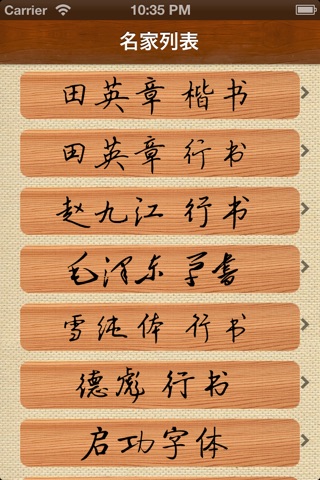 Carrier 10:35 PM
名家列表
田英章 楷书
田英章 行书
赵九江 行书
毛泽东 草书
雪纯体 行书
德彪 行书
启功字体